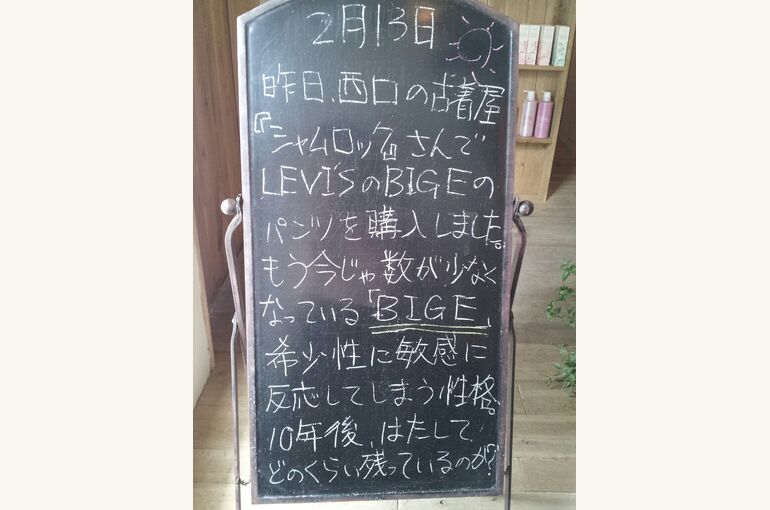 2月13日
昨日、西口の古着屋
『シャムロック』さんで
LEVI'SのBIGEの
パンツを購入しました。
もう今じゃ数が少なく
なっている「BIGE」
希少性に敏感に
反応してしまう性格。
10年後、はたして
どのくらい残っているのか?